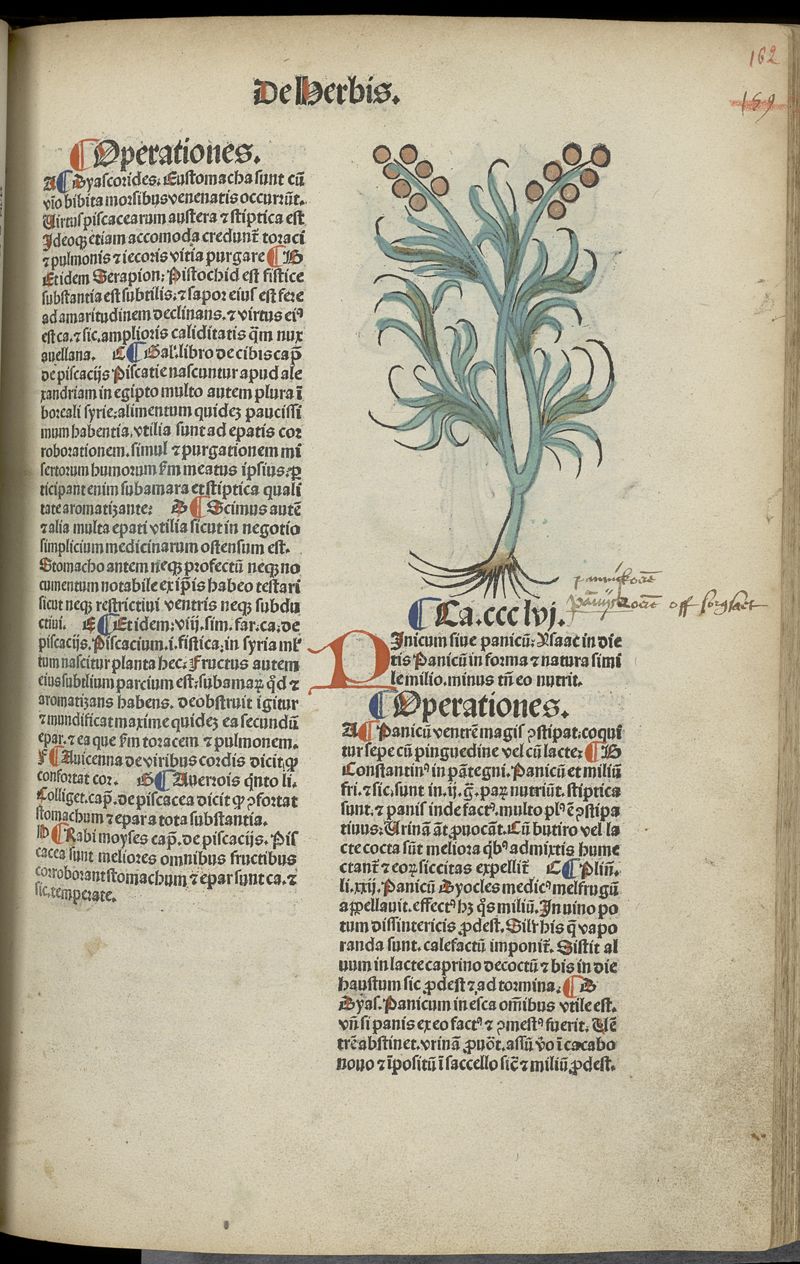 162
159
De Herbis.
Operationes.
A ¶ Dyascorides. Eustomacha sunt cū
vīo bibita morsibus venenatis occurrūt.
Virtus piscacearum austera ⁊ stiptica est
Ideoqꝫ etiam accomoda credunt̄ toraci
⁊ pulmonis ⁊ iecoris vitia purgare ¶ B
Et idem Serapion. Pistochid est fistice
substantia est subtilis. ⁊ sapor eius est fere
ad amaritudinem declinans. ⁊ virtus eiꝰ
est ca. ⁊ sic. amplioris caliditatis q̄m nux
auellana. C ¶ Gal. libro de cibis cap̄
de piscacijs Piscatie nascuntur apud ale
xandriam in egipto multo autem plura ī
boreali syrie. alimentum quideꝫ paucissi
mum habentia. vtilia sunt ad epatis cor
roborationem. simul ⁊ purgationem mi
sertorum humorum ẜm meatus ipsius. ꝑ
ticipant enim subamara et stiptica quali
tate aromatizante. D ¶ Scimus autē
⁊ alia multa epati vtilia sicut in negotio
simplicium medicinarum ostensum est.
Stomacho autem neqꝫ profectū neqꝫ no
cumentum notabile ex ip̄is habeo testari
sicut neqꝫ restrictiui ventris neqꝫ subdu
ctiui. E ¶ Et idem. viij. sim. far. ca. de
piscacijs. Piscacium .i. fistica. in syria ml̕
tum nascitur planta hec. Fructus autem
eius subtilium parcium est. subamaꝝ qd̄ ⁊
aromatizans habens. deobstruit igitur
⁊ mundificat maxime quidez ea secundū
epar. ⁊ ea que ẜm toracem ⁊ pulmonem.
F ¶ Auicenna de viribus cordis dicit. ꝙ
confortat cor. G ¶ Auerrois q̄nto li.
Colliget. cap̄. de piscacea dicit ꝙ ꝯfortat
stomachum ⁊ epar a tota substantia.
H ¶ Rabi moyses cap̄. de piscacijs. Pis
cacea sunt meliores omnibus fructibus
corroborant stomachum ⁊ epar sunt ca. ⁊
sic. temperate.
¶ Ca. ccc lvj.
PInicum siue panicū. Ysaac in die
tis Panicū in forma ⁊ natura simi
le milio. minus tn̄ eo nutrit.
¶ Operationes.
A ¶ Panicū ventrē magis ꝯstipat. coqui
tur sepe cū pinguedine vel cū lacte. ¶ B
Constantinꝰ in pātegni. Panicū et miliū
fri. ⁊ sic. sunt in .ij. g̈. paꝝ nutriūt. stiptica
sunt. ⁊ panis inde factꝰ. multo plꝰ ē ꝯstipa
tiuus. Urinā āt ꝓuocāt. Cū butiro vel la
cte cocta sūt meliora qbꝰ admixtis hume
ctant̄ ⁊ eoꝝ siccitas expellit̄ C ¶ Pliñ.
li. xxij. Panicū Dyocles medicꝰ mel frugū
appellauit. effectꝰ hꝫ qͦs miliū. In uino po
tum dissintericis ꝓdest. Silr̄ his q̄ vapo
randa sunt. calefactū imponit̄. Sistit al
uum in lacte caprino decoctū ⁊ bis in die
haustum sic ꝓdest ⁊ ad tormina. ¶ D
Dyas. Panicum in esca om̄ibus vtile est.
vn̄ si panis ex eo factꝰ ⁊ ꝯmestꝰ fuerit. Uē
trē abstinet. vrinā ꝓuōt. assū v̄o ī cacabo
nouo ⁊ īpositū ī saccello sic̄ ⁊ miliū ꝓdest.